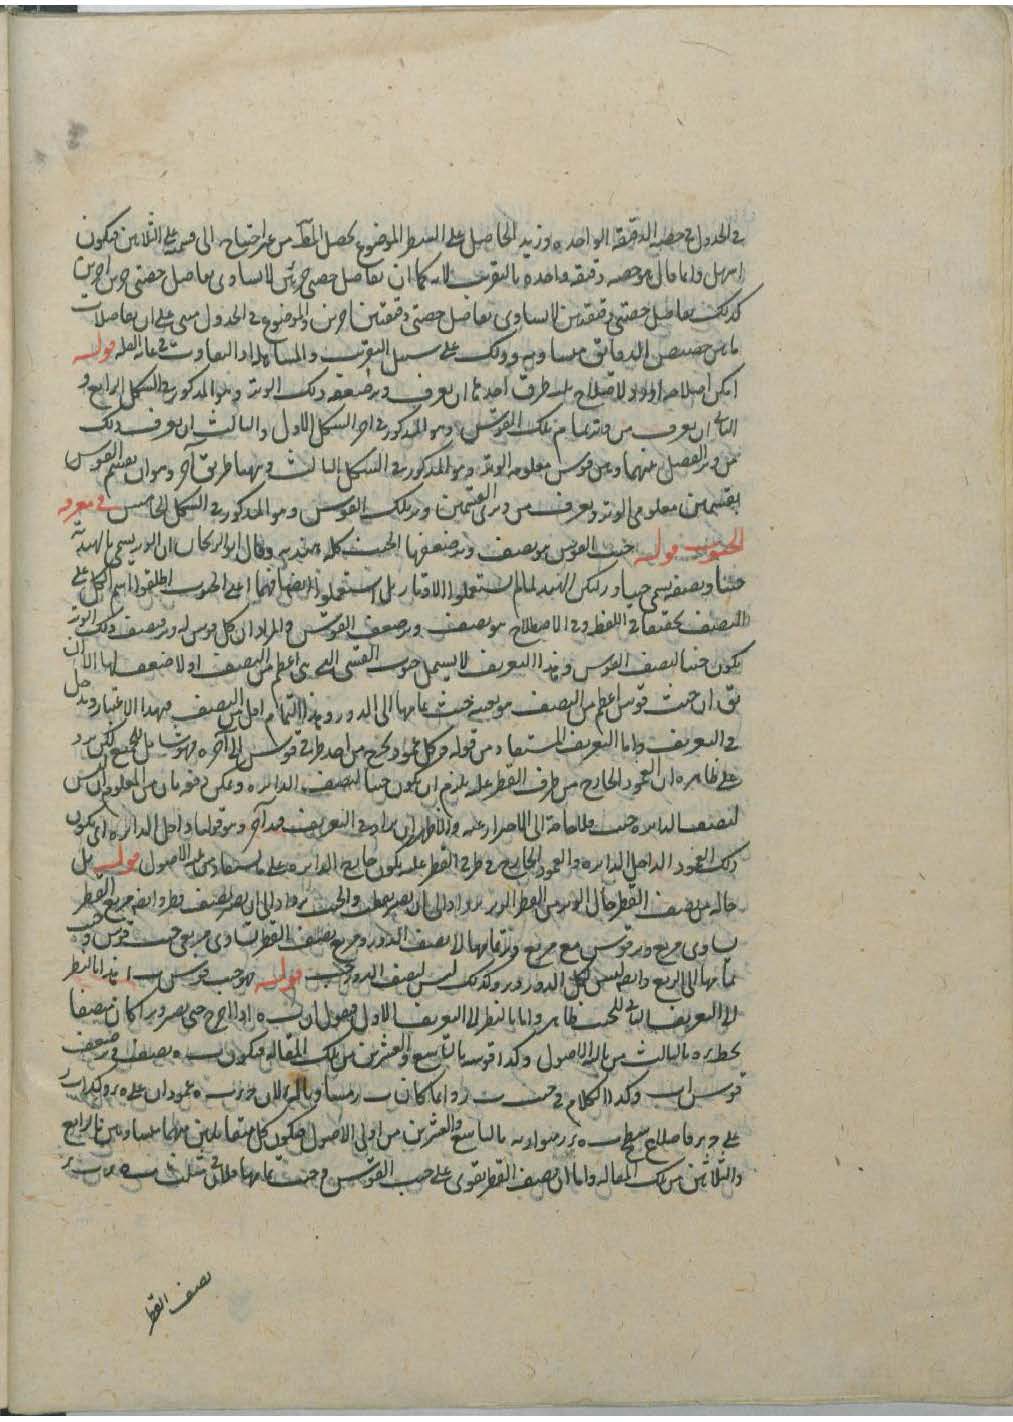 في الجدول في حصة الدقيقة الواحدة وزيد الحاصل على السطر الموضوع يحصل المط من غير احتياج الى قسمة على الثلاثين فيكون
اسهل وانما قال حصة دقيقة واحدة بالتقريب لانه كما ان تفاضل حصتي جزئين لا يساوي تفاضل حصتي جزئين اخرين
كذلك تفاضل حصتي دقيقتين لا يساوي تفاضل حصتي دقيقتين اخريين والموضوع في الجدول مبني على ان تفاضلات
ما بين حصص الدقايق متساوية وذلك على سبيل التقريب والمساهلة اذ التفاوت في غاية القلة قوله
امكن اصلاحه اولا ولاصلاح ثلث طرق احدها ان يعرف وتر ضعفه ذلك الوتر وهو المذكور في الشكل الرابع و
الثاني ان يعرف من وتر تمام تلك القوس وهو المذكور في اخر الشكل الاول والثالث ان يعرف ذلك
من وتر الفضل بينهما وبين قوس معلومة الوتر وهو المذكور في الشكل الثالث وههنا طريق آخر وهو ان يقسم القوس
بقسمين معلومي الوتر ويعرف من وتري القسمين وتر تلك القوس وهو المذكور في الشكل الخامس في معرفة
الجيوب قوله جيب القوس هو نصف وتر ضعفها الجيب كلمة هندية وقال ابو الريحان ان الوتر يسمى بالهندية
جيبا ونصفه يسمى جيبا ولكن الهند لما لم يستعملوا الاوتار بل استعملوا انصافها اعني الجيوب اطلقوا اسم الكل على
النصف تخفيفا في اللفظ وفي الاصطلاح هو نصف وتر ضعف القوس والمراد ان كل قوس له وتر فنصف ذلك الوتر
يكون جيبا لنصف القوس وهذا التعريف لا يشمل جيوب القسي التي هي اعظم من النصف اذ لا ضعف لها الا ان
يق ان جيب قوس اعظم من النصف هو بعينه جيب تمامها الى الدور وهذا التمام اقل من النصف فبهذا الاعتبار يدخل
في التعريف واما التعريف المستفاد من قوله وكل عمود يخرج من احد طرفي قوس الى آخره فهو شامل للجميع لكن يرد
على ظاهره ان العمود الخارج من طرف القطر عليه يلزم ان يكون جيبا لنصف الدائرة ويمكن دفعه بان من المعلوم ان ليس
لنصف الدائرة جيب فلا حاجة الى الاحتراز عنه والاظهر ان يراد في التعريف قيد آخر وهو قولنا داخل الدائرة اي يكون
ذلك العمود الداخل الدائرة والعمود الخارج من طرفي القطر عليه يكون خارج الدائرة على ما يستفاد من ثالثة الاصول قوله بل
حاله من نصف القطر حال الوتر من القطر الوتر يزداد الى ان يصير القطر والجيب يزداد الى ان يصير نصف قطر وايضا مربع القطر
يساوي مربع وتر قوس مع مربع وتر تمامها الى نصف الدور ومربع نصف القطر يساوي مربعي جيب قوس وجيب
تمامها الى الربع وايضا ليس لكل الدور وتر وكذلك ليس لنصف الدور جيب قوله فهو جيب قوس ب ا هذا بالنظر
الى التعريف الثاني للجيب ظاهر واما بالنظر الى التعريف الاول فنقول ان ب ه اذا اخرج حتى يصير وترا كان منصفا
بخط ه بالثالث من ثالثة الاصول وكذا قوسه بالتاسع والعشرين من تلك المقالة فيكون ب ه نصف وتر ضعف
قوس اب وكذا الكلام في جيب وانما كان ب ر مساويا لـ ه لان ب ه عمودان على ه وكذلك ب ر
على د فاضلاع سطح ب ه ر متوازية بالتاسع والعشرين من اولى الاصول فيكون كل متقابلين منها متساويين بالرابع
والثلاثين من تلك المقالة واما ان نصف القطر يقوى على جيب القوس وجيب تمامها فلان في مثلث ب ه
نصف القطر